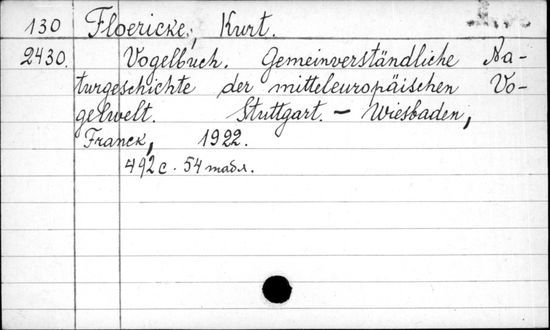 130 Floericke, Kurt.
2430. Vogelbuch. Gemeinverständliche Na-
turgeschichte der mitteleuropäischen Vo-
gelwelt. Stuttgart. - Wiesbaden,
Franck, 1922.
492 с. 54 табл.